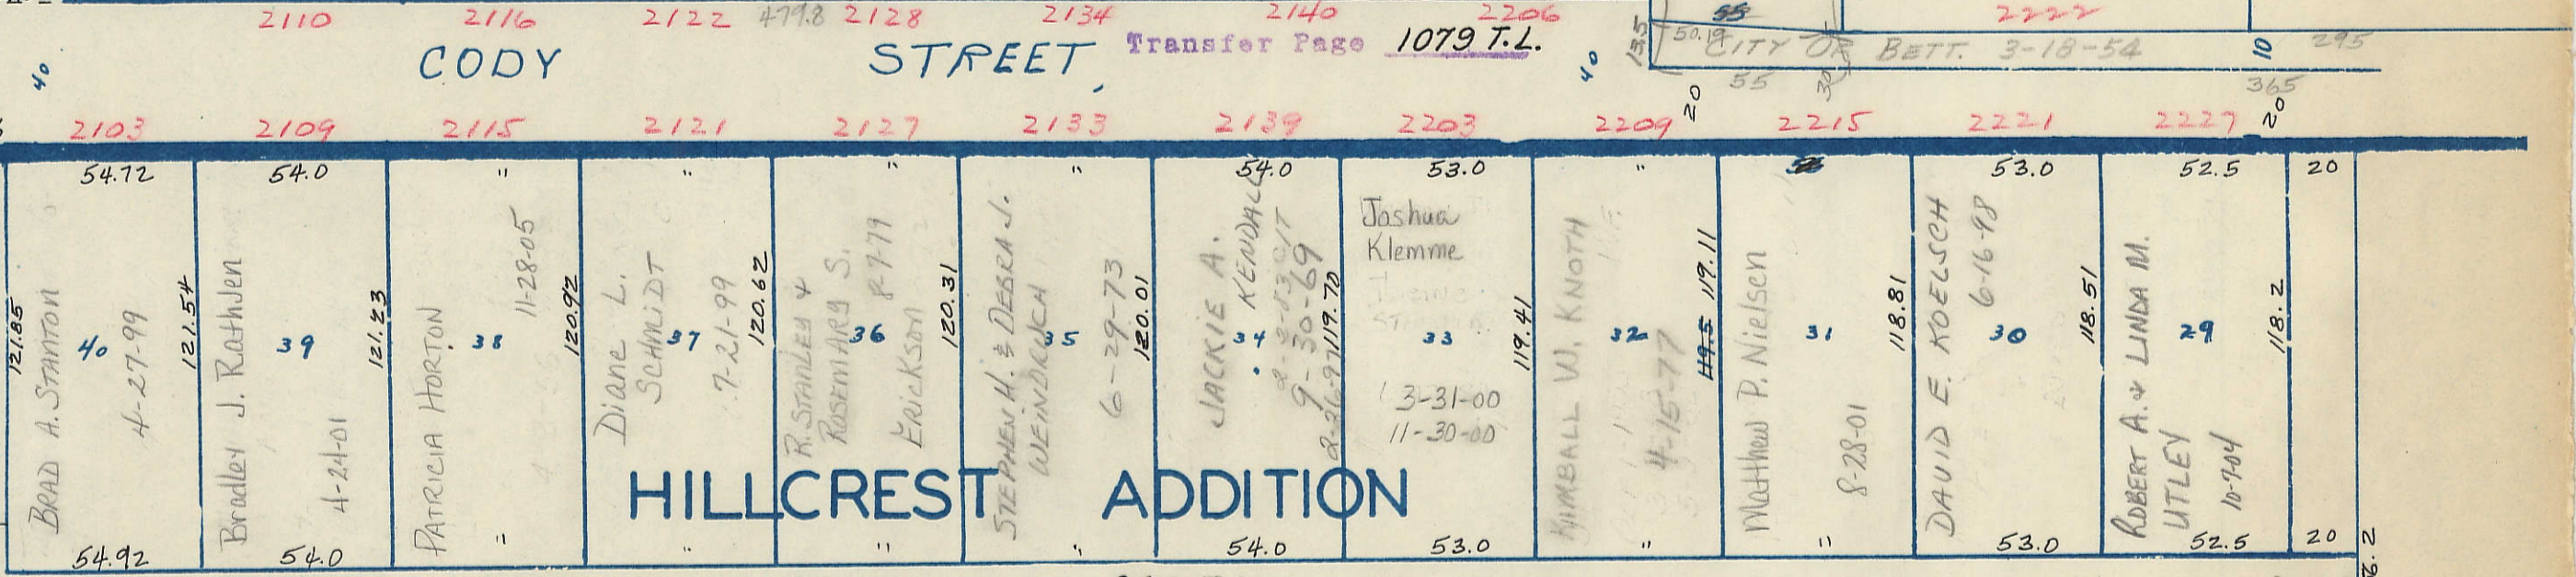 2110 2116 2122 479.8 2128 2134 2140 2206 55 2222
CODY STREET Transfer Page 1079 T.L.
40 40 135 50.19 CITY OF BETT. 3-18-54 10 295
55 30 365
20 20
2103 2109 2115 2121 2127 2133 2139 2203 2209 2215 2221 2227
54.72 54.0 " " " " 54.0 53.0 " 53.0 52.5 20
121.85
BRAD A. STANTON
40
4-27-99
121.54
Bradley J. Rathjen
39
4-24-01
121.23
PATRICIA HORTON
38
11-28-05
120.92
Diane L.
SCHMIDT
37
7-21-99
120.62
R. STANLEY &
ROSEMARY S.
36
ERICKSON 8-7-79
120.31
STEPHEN H. & DEBRA J.
WEINDRUCH
35
6-29-73
120.01
JACKIE A.
KENDALL
34
9-30-69
2-26-97
119.70
Joshua
Klemme
33
3-31-00
11-30-00
119.41
KIMBALL W. KNOTH
32
4-15-77
119.5 119.11
Matthew P. Nielsen
31
8-28-01
118.81
DAVID E. KOELSCH
30
6-16-98
118.51
ROBERT A. & LINDA M.
UTLEY
29
10-7-04
118.2
HILLCREST ADDITION
54.92 54.0 " " " " 54.0 53.0 " " 53.0 52.5 20
6.2